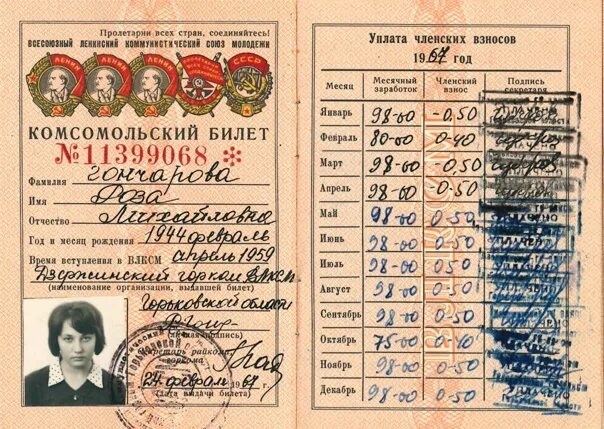 Пролетарии всех стран, соединяйтесь!
ВСЕСОЮЗНЫЙ ЛЕНИНСКИЙ КОММУНИСТИЧЕСКИЙ СОЮЗ МОЛОДЕЖИ
ЛЕНИН ЛЕНИН ЛЕНИН СССР
КОМСОМОЛЬСКИЙ БИЛЕТ
№11399068 *
Фамилия Гончарова
Имя Роза
Отчество Михайловна
Год и месяц рождения 1944 февраль
Время вступления в ВЛКСМ апрель 1959
Дзержинский горком ВЛКСМ
(наименование организации, выдавшей билет)
Горьковской области
(личная подпись)
Секретарь райкома
горкома
24 феврал 1967 г.
(дата выдачи билета)
Уплата членских взносов
1967 год
Месяц Месячный заработок Членский взнос Подпись секретаря
Январь 98-00 -0,50
Февраль 80-00 0-40
Март 98-00 -0,50
Апрель 98-00 -0,50
Май 98-00 0-50
Июнь 98-00 0-50
Июль 98-00 0-50
Август 98-00 0-50
Сентябрь 98-00 0-50
Октябрь 75-00 0-40
Ноябрь 98-00 0-50
Декабрь 98-00 0-50